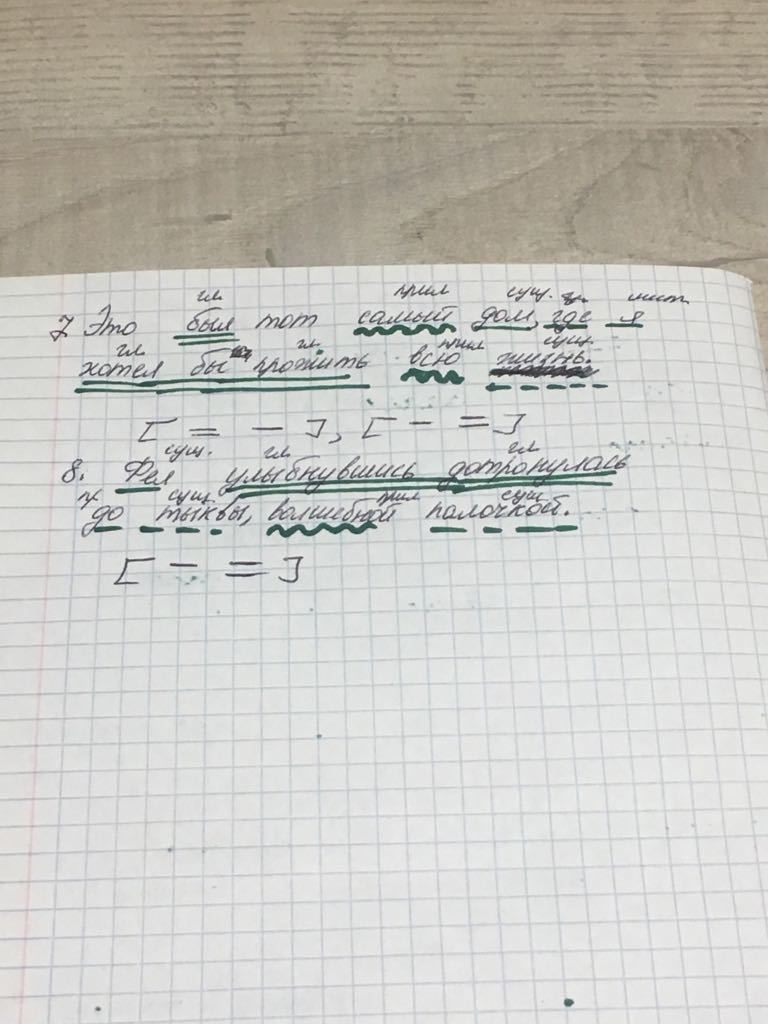 гл прил сущ. мест
7 Это был тот самый дом, где я
гл гл. прил сущ.
хотел бы прожить всю жизнь.
[ = - ], [ - = ]
сущ. гл гл
8. Фея улыбнувшись дотронулась
сущ прил сущ
до тыквы, волшебной палочкой.
[ - = ]